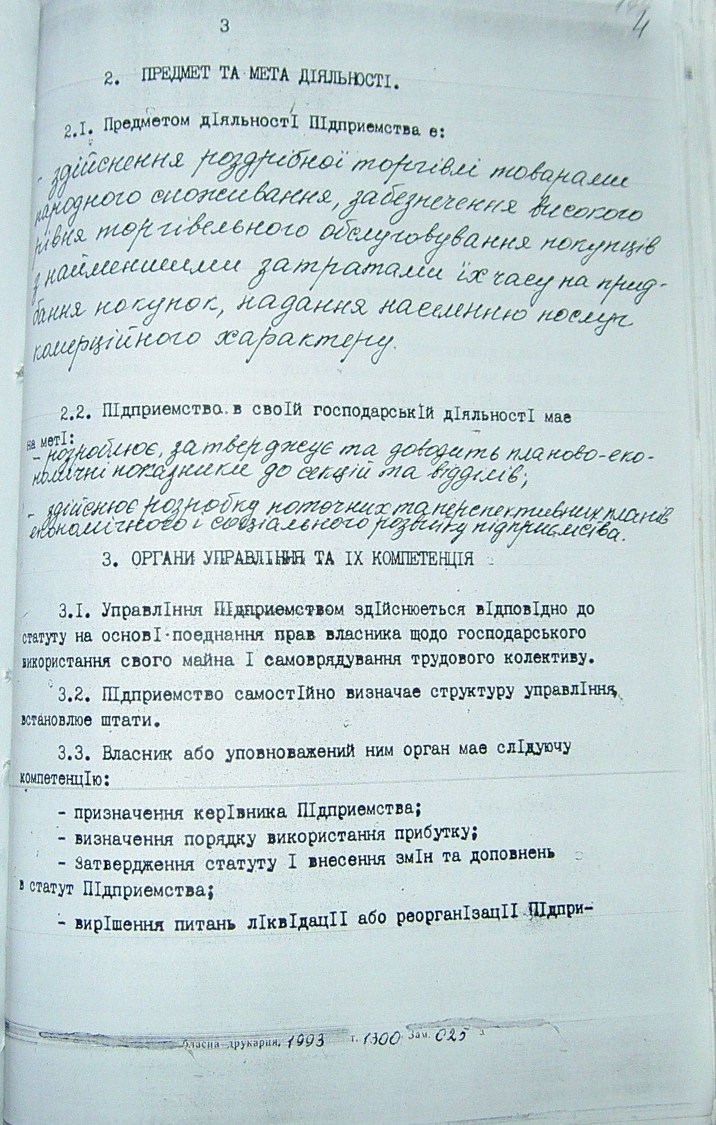 3
4
2. ПРЕДМЕТ ТА МЕТА ДІЯЛЬНОСТІ.
2.І. Предметом діяльності Підприємства є:
- здійснення роздрібної торгівлі товарами
народного споживання, забезпечення високого
рівня торгівельного обслуговування покупців
з найменшими затратами їх часу на прид-
бання покупок, надання населенню послуг
комерційного характеру.
2.2. Підприємство в своїй господарській діяльності має
на меті:
- розроблює, затверджує та доводить планово-еко-
номічні показники до секцій та відділів;
- здійснює розробку поточних та перспективних планів
економічного і соціального розвитку підприємства.
3. ОРГАНИ УПРАВЛІННЯ ТА ЇХ КОМПЕТЕНЦІЯ
3.І. Управління Підприємством здійснюється відповідно до
статуту на основі поєднання прав власника щодо господарського
використання свого майна і самоврядування трудового колективу.
3.2. Підприємство самостійно визначає структуру управління,
встановлює штати.
3.3. Власник або уповноважений ним орган має слідуючу
компетенцію:
- призначення керівника Підприємства;
- визначення порядку використання прибутку;
- Затвердження статуту і внесення змін та доповнень
в статут Підприємства;
- вирішення питань ліквідації або реорганізації Підпри-
бласна друкарня, 1993 т. 1300 Зам. 025